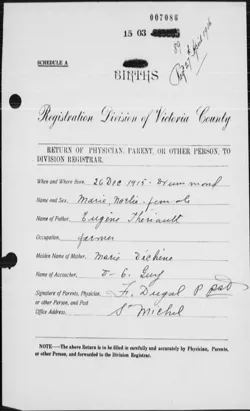 007086
15 03
SCHEDULE A
BIRTHS
Registration Division of Victoria County
RETURN OF PHYSICIAN, PARENT, OR OTHER PERSON, TO
DIVISION REGISTRAR.
When and Where Born, 26 Dec 1915 - Drummond
Name and Sex, Marie, female
Name of Father, Eugène Theriault
Occupation, farmer
Maiden Name of Mother, Marie Dechene
Name of Accoucher,
Signature of Parents, Physician, F. Dugal P
or other Person, and Post
Office Address, St Michel
NOTE:—The above Return is to be filled in carefully and accurately by Physician, Parents,
or other Person, and forwarded to the Division Registrar.